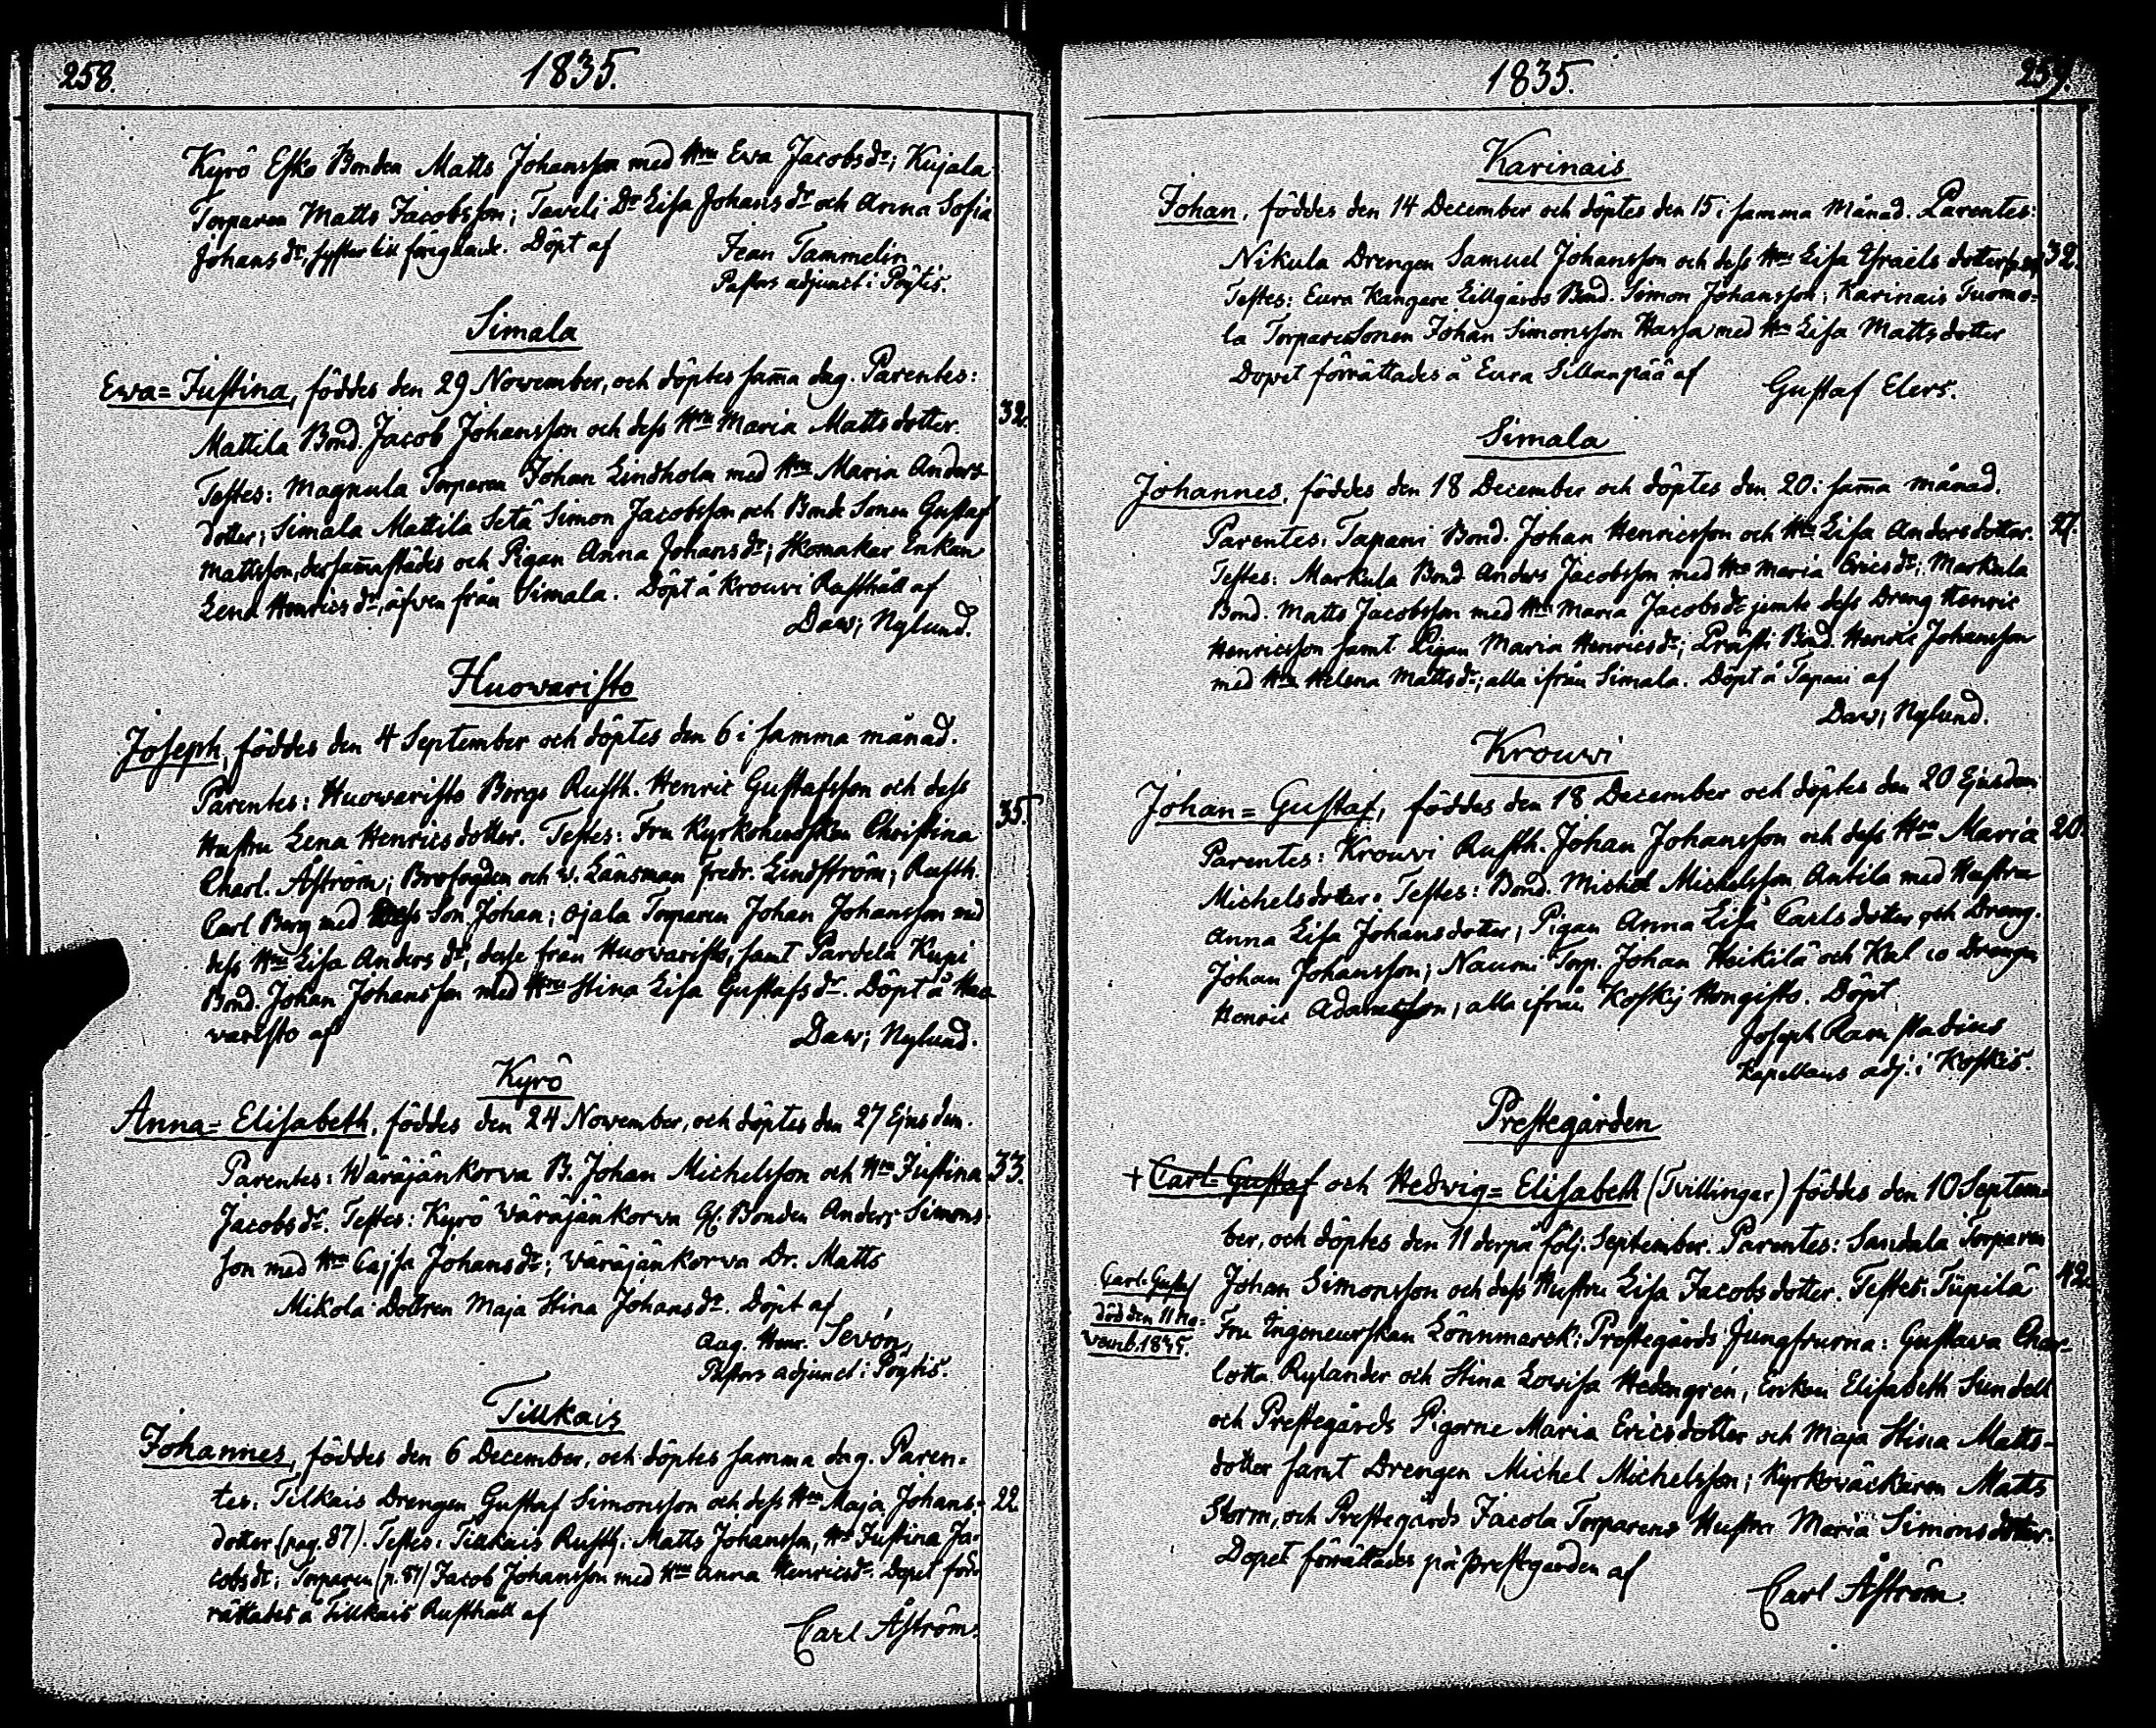 258.
1835.
Kyrö Esko Bonden Matts Johansson med Hru Ewa Jacobsdr; Kujala
Torparen Matts Jacobsson; Taveli Dr Lisa Johansdr och Anna Sofia
Johansdr, syster till föregående. Döpt af
Jean Tammelin
Pastors adjunct i Pöytis.
Simala
Ewa=Justina, föddes den 29 November, och döptes sam̅a dag. Parentes:
Mattila Bond. Jacob Johansson och dess Hru Maria Mattsdotter.
32.
Testes: Magnula Torparen Johan Lindholm med Hru Maria Anders-
dotter; Simala Mattila Setä Simon Jacobsson och Bonde Sonen Gustaf
Mattsson, dersam̅astädes och Pigan Anna Johansdr; Skomakar Enkan
Lena Henricsdr, äfven från Simala. Döpt å Krouvi Rusthåll af
Daw; Nylund.
Huovaristo
Joseph, föddes den 4 September och döptes den 6 i samma månad.
Parentes: Huowaristo Borgs Rusth. Henric Gustafsson och dess
35.
Hustru Lena Henricsdotter. Testes: Fru Kyrkoherdskan Christina
Charl. Åström; Brofogden och v. Länsman Fredr. Lindström; Rusth.
Carl Borg med dess Son Johan; Ojala Torparen Johan Johansson med
dess Hru Lisa Andersdr, desse från Huovaristo, samt Pardela Kupi
Bond. Johan Johansson med Hru Stina Lisa Gustafsdr. Döpt å Huo-
varisto af
Daw; Nylund.
Kyrö
Anna=Elisabeth, föddes den 24 November, och döptes den 27 Ejusdem.
Parentes: Wäräjänkorva B. Johan Michelsson och Hru Justina
33.
Jacobsdr. Testes: Kyrö Wäräjänkorva Gl. Bonden Anders Simons-
son med Hru Cajsa Johansdr; Wäräjänkorva Dr. Matts
Mikola Dottren Maja Stina Johansdr. Döpt af
Aug. Henr. Sevón,
Pastors adjunct i Pöytis.
Tillkais
Johannes, föddes den 6 December, och döptes samma dag. Paren=
tes: Tilkais Drengen Gustaf Simonsson och dess Hru Maja Johans=
22.
dotter (pag. 87). Testes: Tillkais Rusth. Matts Johansson, Hr Justina Ja-
cobsdr; Torparen (p. 87) Jacob Johansson med Hru Anna Henricsdr. Dopet för-
rättades å Tillkais Rusthåll af
Carl Åström.
1835.
259.
Karinais
Johan, föddes den 14 December och döptes den 15 i samma Månad. Parentes:
Nikula Drengen Samuel Johansson och dess Hru Lisa Israels dotter
32.
Testes: Eura Kangare Lillgårds Bond. Simon Johansson; Karinais Tuomo=
la TorpareSonen Johan Simonsson Hassa med Hru Lisa Mattsdotter
Dopet förrättades å Eura Sillanpää af
Gustaf Elers.
Simala
Johannes, föddes den 18 December och döptes den 20 i sam̅a månad.
Parentes. Tapani Bond. Johan Henricsson och Hru Lisa Andersdotter.
27.
Testes: Markula Bond. Anders Jacobsson med Hru Maria Ericsdr; Markula
Bond. Matts Jacobsson med Hru Maria Jacobsdr jemte dess Dreng Henric
Henricsson samt Pigan Maria Henricsdr; Prästi Bond. Henric Johansson
med Hru Helena Mattsdr; alla ifrån Simala. Döpt å Tapani af
Daw; Nylund.
Krouvi
Johan=Gustaf, föddes den 18 December och döptes den 20 Ejusdem
Parentes: Krouvi Rusth. Johan Johansson och dess Hru Maria
20.
Michelsdotter. Testes: Bond. Michel Michelsson Antila med Hustru
Anna Lisa Johansdotter; Pigan Anna Lisa Carlsdotter och Dreng.
Johan Johansson; Naumi Torp. Johan Heikilä och Drengen
Henric Adamsson; alla ifrån Koskij Hongisto. Döpt
Joseph Ramstadius
Kapellans adj. i Koskis.
Prestegården
+ Carl=Gustaf och Hedvig=Elisabeth (Tvillingar) föddes den 10 Septem=
ber, och döptes den 11 derpå följ. September. Parentes: Sandala Torparen
Johan Simonsson och dess Hustru Lisa Jacobsdotter. Testes: Tüpilä
42.
Carl-Gustaf
död den 11 No=
vemb. 1835.
Fru Ingeneurskan Lönnmarck; Prestegårds Jungfrurna: Gustava Char-
lotta Rylander och Stina Lovisa Hedengrén, Enkan Elisabeth Sundell
och Prestegårds Pigorne Maria Ericsdotter och Maja Stina Matts-
dotter samt Drengen Michel Michelsson; Kyrkoväckaren Matts
Storm, och Prestegårds Jacola Torparens Hustru Maria Simonsdotter.
Dopet förrättades på prestgården af
Carl Åström.